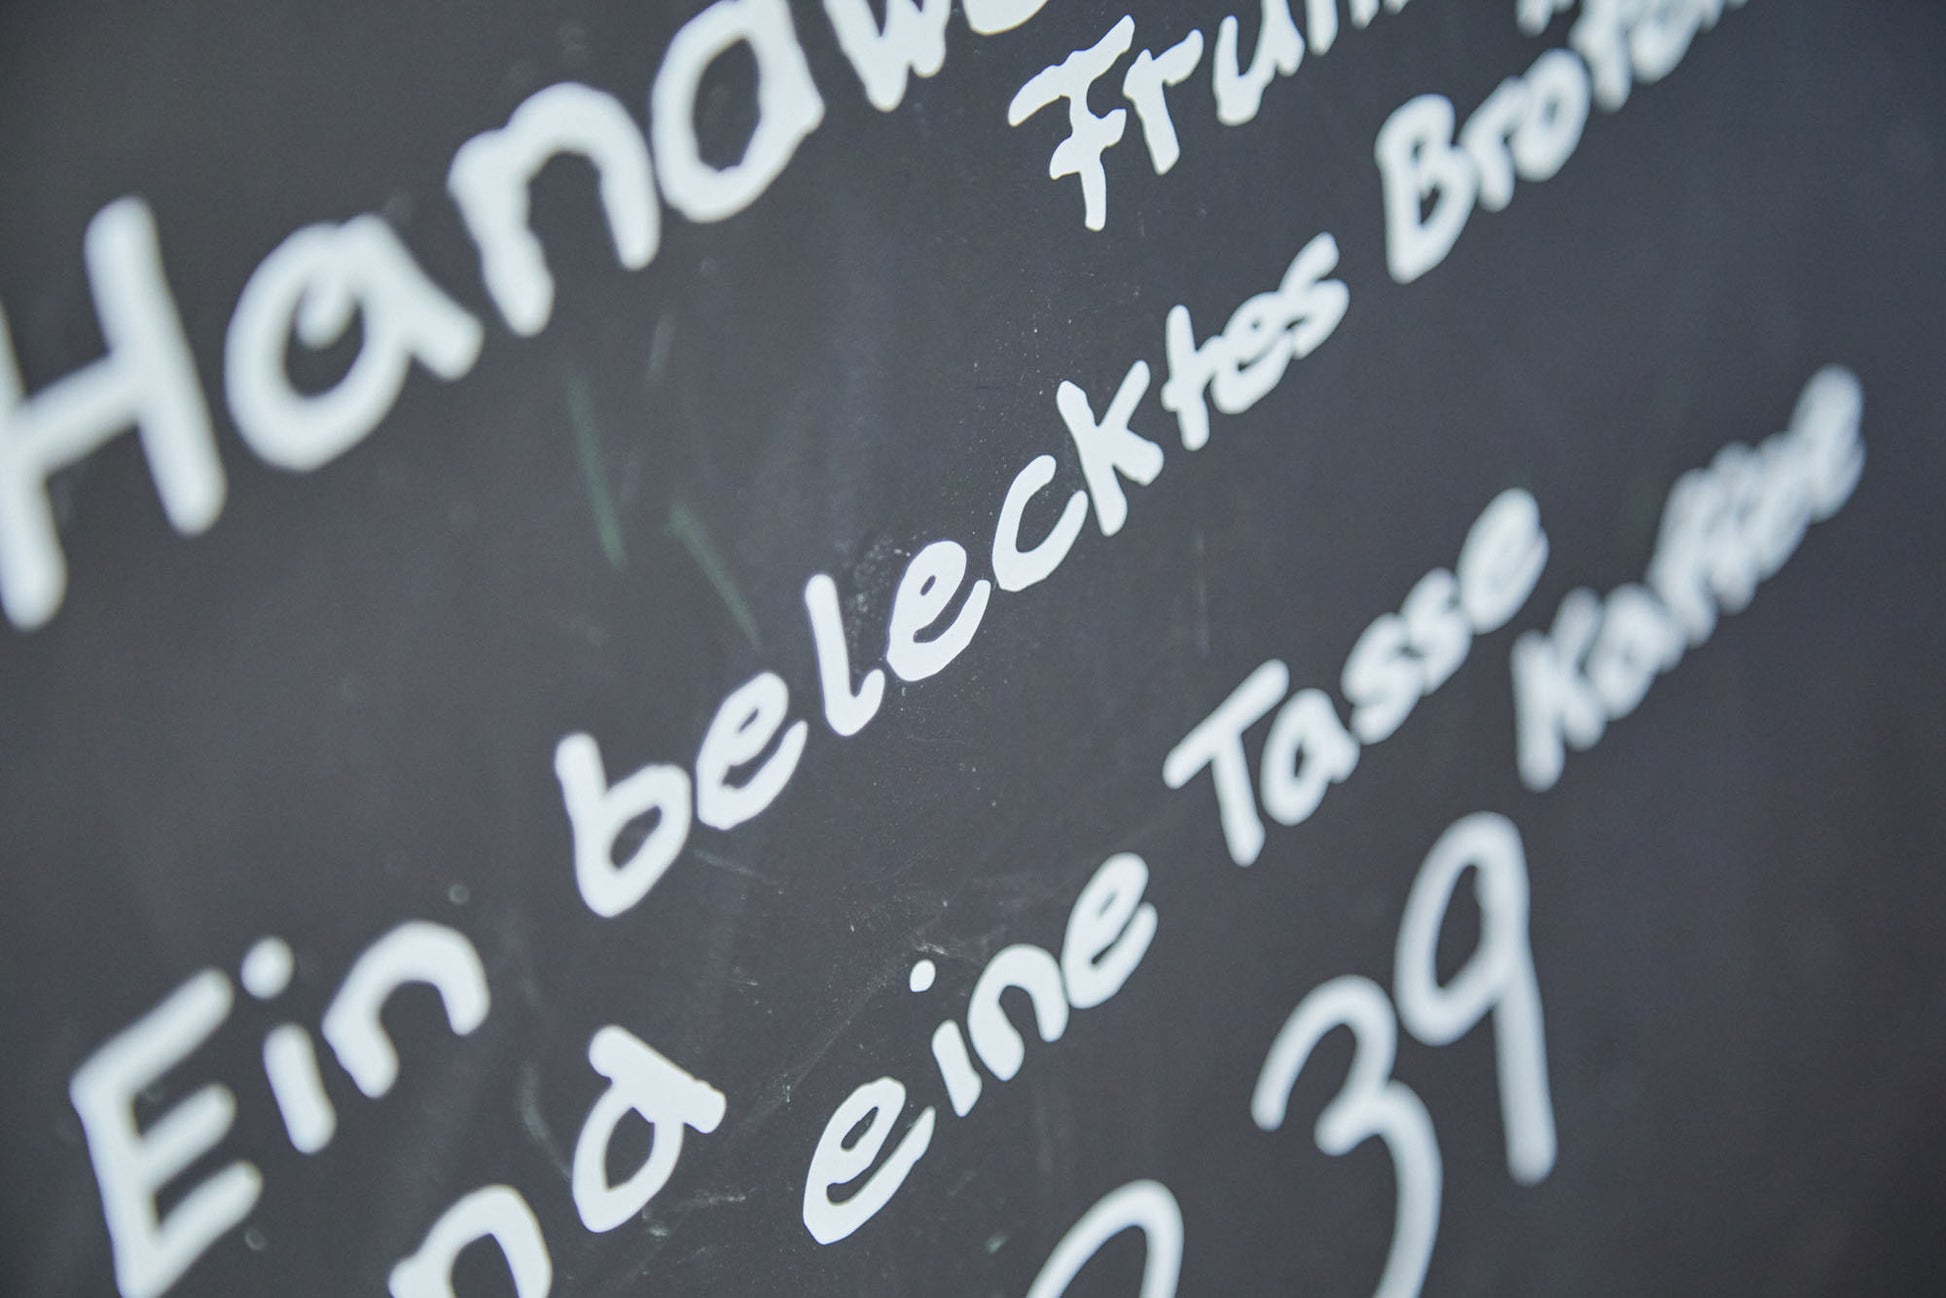 Handw
Ein belecktes
nd eine Tasse Kaffee
39